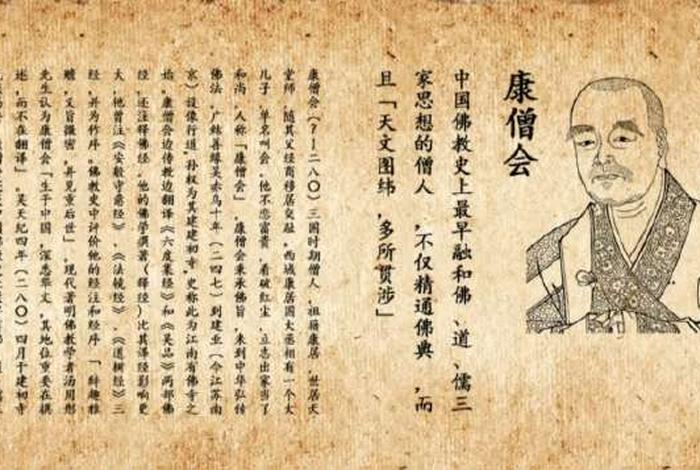 康僧会
中国佛教史上最早融和佛、道、儒三
家思想的僧人，不仅精通佛典，而
且「天文图纬，多所贯涉」
康僧会（？—二八〇）三国时期僧人，祖籍康居，世居天
堂师，随其父经商移居交趾，西域康居国大丞相有一个大
儿子，单名叫会，他不恋富贵，看破红尘，立志出家当了
和尚，人称「康僧会」，康僧会秉承佛旨，来到中华弘传
佛法，广结善缘吴赤乌十年（二四七）到建业（今江苏南
京）设像行道，孙权为其建建初寺，史称此为江南有佛寺之
始，康僧会边传教边翻译《六度集经》和《吴品》两部佛
经，还注释佛经，他的佛学撰著（释经）比其译经影响更
大，他曾注《安般守意经》、《法镜经》、《道树经》三
经，并为作序。佛教史中评价他的经注和经序「辞趣雅
赡，义旨微密，并见重后世」，现代著明佛教学者汤用彤
先生认为康僧会「生于中国，深悉华文，其地位重要在撰
述，而不在翻译」，吴天纪四年（二八〇）四月于建初寺